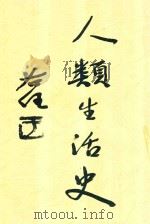 人類生活史